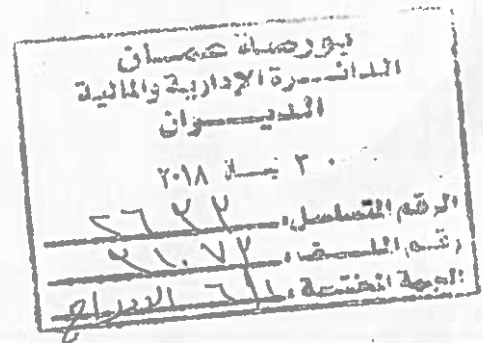 بورصة عمان
الدائرة الإدارية والمالية
الديوان
٣٠ نيسان ٢٠١٨
الرقم المتسلسل:
رقم الملف:
الجهة المختصة: الادراج